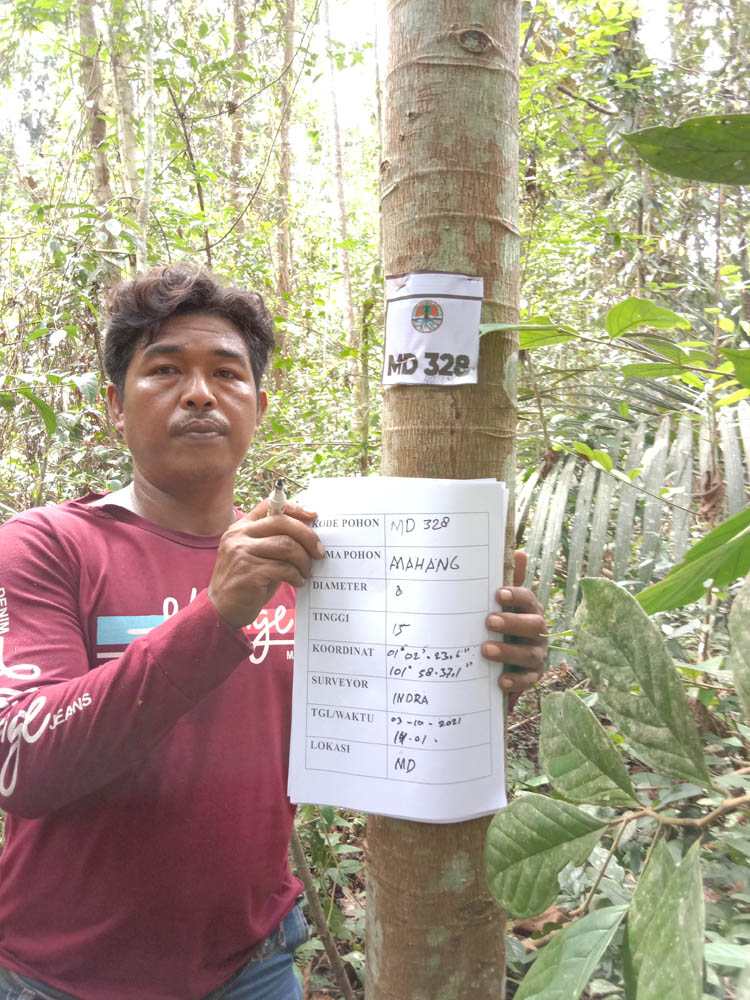 MD 328
KODE POHON MD 328
AMA POHON MAHANG
DIAMETER 8
TINGGI 15
KOORDINAT 01° 02'. 23,6"
101° 58.37,1"
SURVEYOR INDRA
TGL/WAKTU 03-10-2021
14.01.
LOKASI MD
DENIM
JEANS